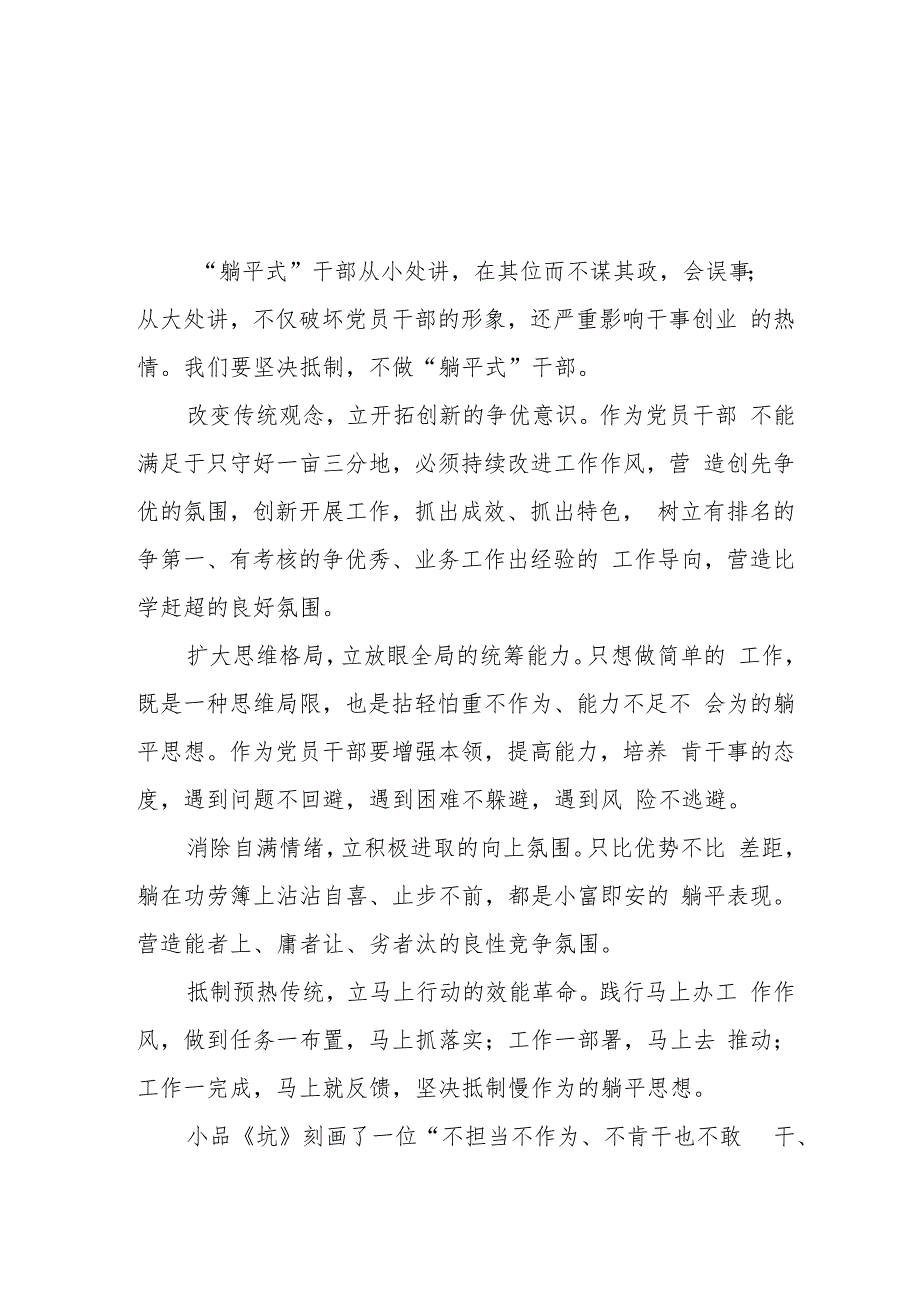 “躺平式”干部从小处讲，在其位而不谋其政，会误事；
从大处讲，不仅破坏党员干部的形象，还严重影响干事创业 的热
情。我们要坚决抵制，不做“躺平式”干部。
改变传统观念，立开拓创新的争优意识。作为党员干部 不能
满足于只守好一亩三分地，必须持续改进工作作风，营 造创先争
优的氛围，创新开展工作，抓出成效、抓出特色， 树立有排名的
争第一、有考核的争优秀、业务工作出经验的 工作导向，营造比
学赶超的良好氛围。
扩大思维格局，立放眼全局的统筹能力。只想做简单的 工作，
既是一种思维局限，也是拈轻怕重不作为、能力不足不 会为的躺
平思想。作为党员干部要增强本领，提高能力，培养 肯干事的态
度，遇到问题不回避，遇到困难不躲避，遇到风 险不逃避。
消除自满情绪，立积极进取的向上氛围。只比优势不比 差距，
躺在功劳簿上沾沾自喜、止步不前，都是小富即安的 躺平表现。
营造能者上、庸者让、劣者汰的良性竞争氛围。
抵制预热传统，立马上行动的效能革命。践行马上办工 作作
风，做到任务一布置，马上抓落实；工作一部署，马上去 推动；
工作一完成，马上就反馈，坚决抵制慢作为的躺平思想。
小品《坑》刻画了一位“不担当不作为、不肯干也不敢 干、